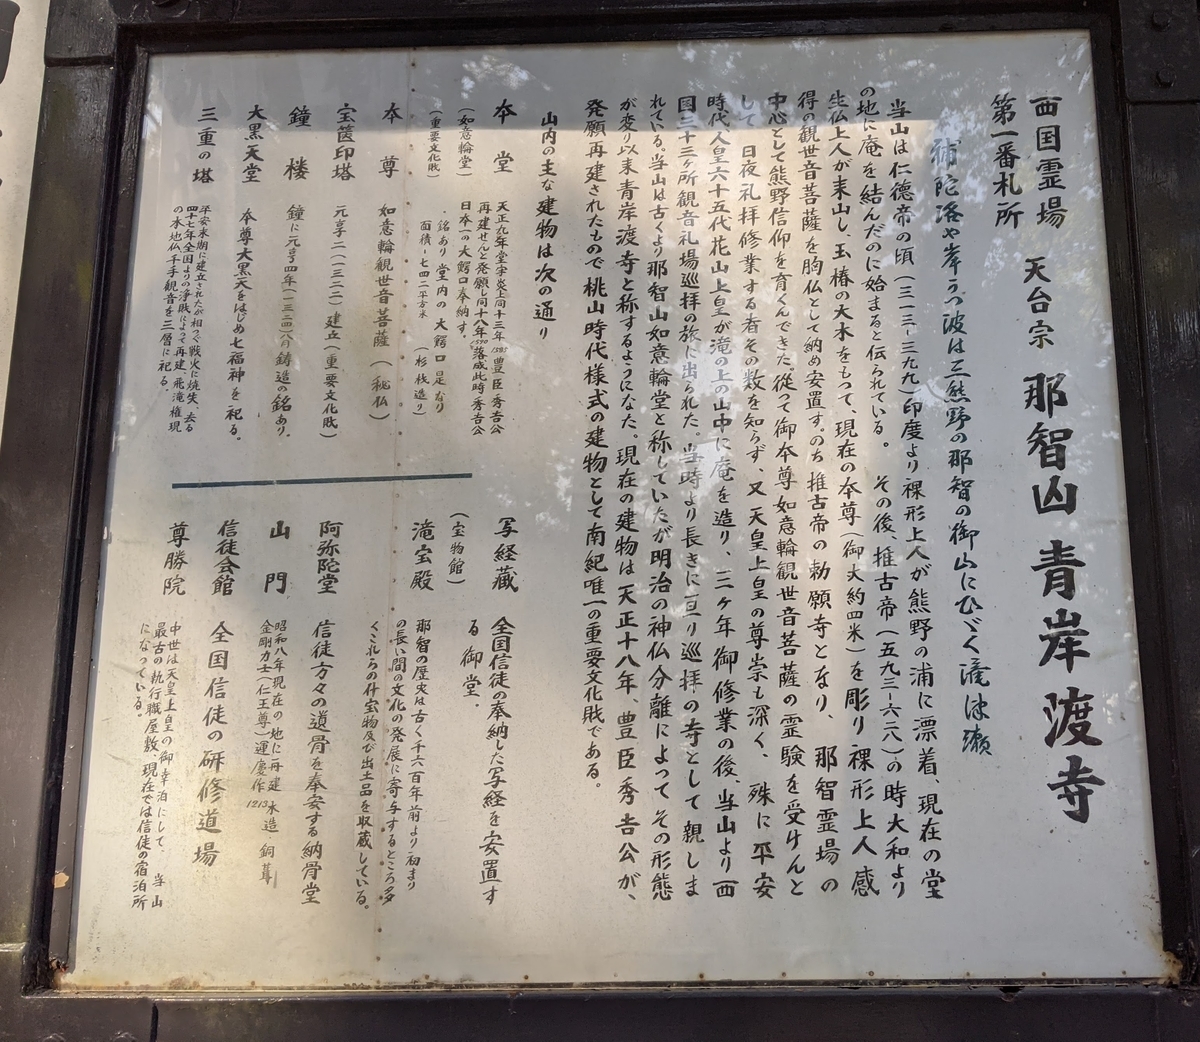 西国霊場
第一番札所
天台宗 那智山 青岸渡寺
補陀洛や岸うつ波は三熊野の那智の御山にひゞく滝津瀬
当山は仁徳帝の頃(三一三-三九九)印度より裸形上人が熊野の浦に漂着、現在の堂
の地に庵を結んだのに始まると伝られている。その後、推古帝(五九三-六二八)の時大和より
生仏上人が来山し、玉椿の大木をもって、現在の本尊(御丈約四米)を彫り裸形上人感
得の観世音菩薩を胸仏として納め安置す。のち推古帝の勅願寺となり、那智霊場の
中心として熊野信仰を育くんできた。従って御本尊如意輪観世音菩薩の霊験を受けんと
して、日夜礼拝修業する者その数を知らず、又天皇上皇の尊崇も深く、殊に平安
時代人皇六十五代花山上皇が滝の上の山中に庵を造り、三ヶ年御修業の後、当山より西
国三十三ヶ所観音札場巡拝の旅に出られた。当時より長きに亘り巡拝の寺として親しま
れている。当山は古くより那智山如意輪堂と称していたが明治の神仏分離によってその形態
が変り以来青岸渡寺と称するようになた。現在の建物は天正十八年、豊臣秀吉公が、
発願再建されたもので桃山時代様式の建物として南紀唯一の重要文化財である。
山内の主な建物は次の通り
本堂
(如意輪堂)
(重要文化財)
天正九年堂宇炎上同十三年1585豊臣秀吉公
再建せんと発願し同十八年1590落成此時秀吉公
日本一の大鰐口奉納す。
・銘あり堂内の大鰐口是なり
面積、七四二平方米 (杉桟造り)
本尊 如意輪観世音菩薩 (秘仏)
宝篋印塔 元享二(一三二二)建立(重要文化財)
鐘楼 鐘に元亨四年(一三二四)八月鋳造の銘あり.
大黒天堂 本尊大黒天をはじめ七福神を祀る。
三重の塔
平安末期に建立されたが相つぐ戦火に焼失、去る
四十七年全国よりの浄財によって再建、飛滝権現
の本地仏千手観音を三層に祀る。
写経蔵 全国信徒の奉納した写経を安置す
る御堂.
(宝物館)
滝宝殿 那智の歴史は古く千六百年前より初まり
の長い間の文化の発展に寄与するところ多
くこれらの什宝物及び出土品を収蔵している。
阿弥陀堂 信徒方々の遺骨を奉安する納骨堂
山門 昭和八年現在の地に再建 木造・銅葺
金剛力士(仁王尊)運慶作1213
信徒会館 全国信徒の研修道場
尊勝院 中世は天皇上皇の御幸泊にして、当山
最古の執行職屋敷、現在では信徒の宿泊所
になっている。